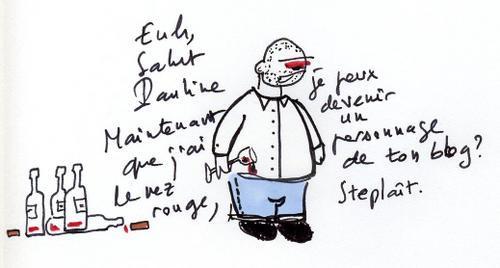 Euh,
Salut
Pauline
Maintenant
que j'ai
le nez
rouge,
je peux
devenir
un
personnage
de ton blog?
Steplaît.